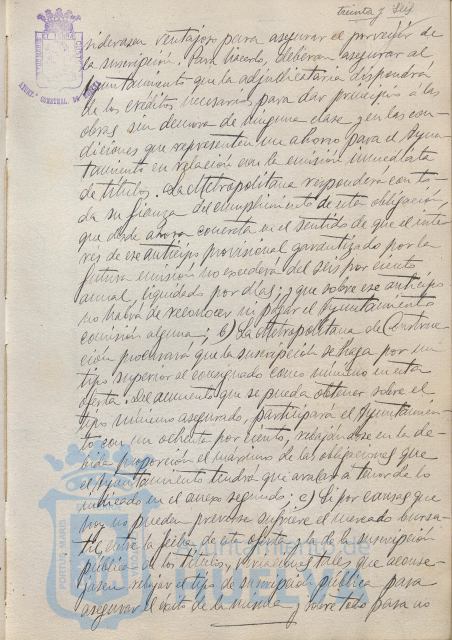 treinta y seis
siderasen ventajoso para asegurar el porvenir de
la suscripción. Para hacerlo, deberán asegurar al
Ayuntamiento que la adjudicataria dispondrá
de los créditos necesarios para dar principio a las
obras sin demora de ninguna clase y en las con-
diciones que representen un ahorro para el Ayun-
tamiento en relación con la emisión inmediata
de títulos. La Metropolitana responderá con to-
da su fianza del cumplimiento de esta obligación,
que desde ahora concreta en el sentido de que el inte-
rés de ese anticipo provisional garantizado por la
futura emisión no excederá del seis por ciento
anual, liquidado por días; y que sobre ese anticipo
no habrá de reconocer ni pagar el Ayuntamiento
comisión alguna; b) La Metropolitana de Construc-
ción procurará que la suscripción se haga por un
tipo superior al consignado como mínimo en esta
oferta. Del aumento que se pueda obtener sobre el
tipo mínimo asegurado, participará el Ayuntamien-
to con un ochenta por ciento, rebajándose en la de-
bida proporción el máximo de las obligaciones que
el Ayuntamiento tendrá que avalar a tenor de lo
indicado en el anexo segundo; c) Si por causas que
hoy no pueden preverse sufriere el mercado bursá-
til, entre la fecha de esta oferta y la de la suscripción
pública de los títulos, variaciones tales que aconse-
jasen rebajar el tipo de suscripción pública para
asegurar el éxito de la misma y sobre todo para no
Ayuntamiento de
HUELVA
PORTUS MARIS